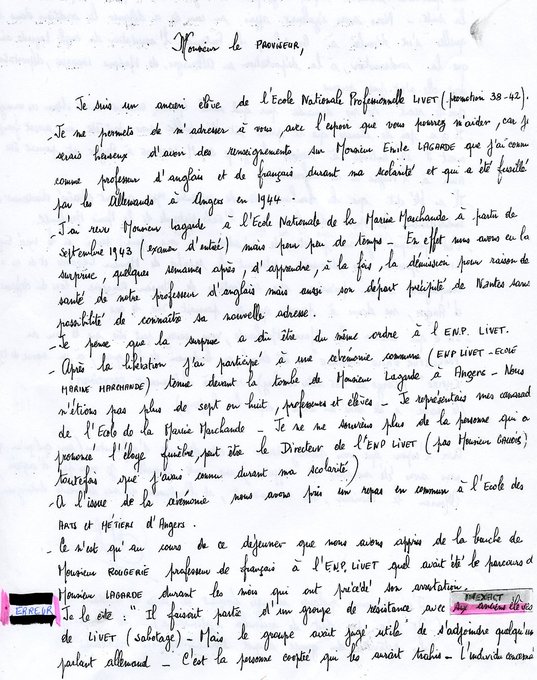 Monsieur le PROVISEUR,
Je suis un ancien élève de l'Ecole Nationale Professionnelle LIVET (promotion 38-42).
Je me permets de m'adresser à vous avec l'espoir que vous pourrez m'aider, car je
serais heureux d'avoir des renseignements sur Monsieur Emile LAGARDE que j'ai connu
comme professeur d'anglais et de français durant ma scolarité et qui a été fusillé
par les Allemands à Angers en 1944.
J'ai revu Monsieur Lagarde à l'Ecole Nationale de la Marine Marchande à partir de
septembre 1943 (examen d'entrée) mais pour peu de temps - En effet nous avons eu la
surprise, quelques semaines après, d'apprendre, à la fois, la démission pour raison de
santé de notre professeur d'anglais mais aussi son départ précipité de Nantes sans
possibilité de connaître sa nouvelle adresse.
- Je pense que la surprise a dû être du même ordre à l'E.N.P. LIVET.
- Après la libération j'ai participé à une cérémonie commune (ENP LIVET - ECOLE
MARINE MARCHANDE) tenue devant la tombe de Monsieur Lagarde à Angers - Nous
n'étions pas plus de sept ou huit, professeurs et élèves - Je représentais mes camarad
de l'Ecole de la Marine Marchande - Je ne me souviens plus de la personne qui a
prononcé l'éloge funèbre, peut être le Directeur de l'ENP LIVET (pas Monsieur
toutefois que j'avais connu durant ma scolarité)
- A l'issue de la cérémonie nous avons pris un repas en commun à l'Ecole des
ARTS et MÉTIERS d'Angers.
- Ce n'est qu'au cours de ce déjeuner que nous avons appris de la bouche de
Monsieur ROUGERIE professeur de français à l'E.N.P. LIVET quel avait été le parcours d
Monsieur LAGARDE durant les mois qui ont précédé son arrestation.
INEXACT
ERREUR Je le cite : " Il faisait partie d'un groupe de résistance avec six anciens élèves
de LIVET (sabotage) - Mais le groupe avait jugé utile de s'adjoindre quelqu'un
parlant allemand - C'est la personne cooptée qui les aurait trahis - L'individu concerné